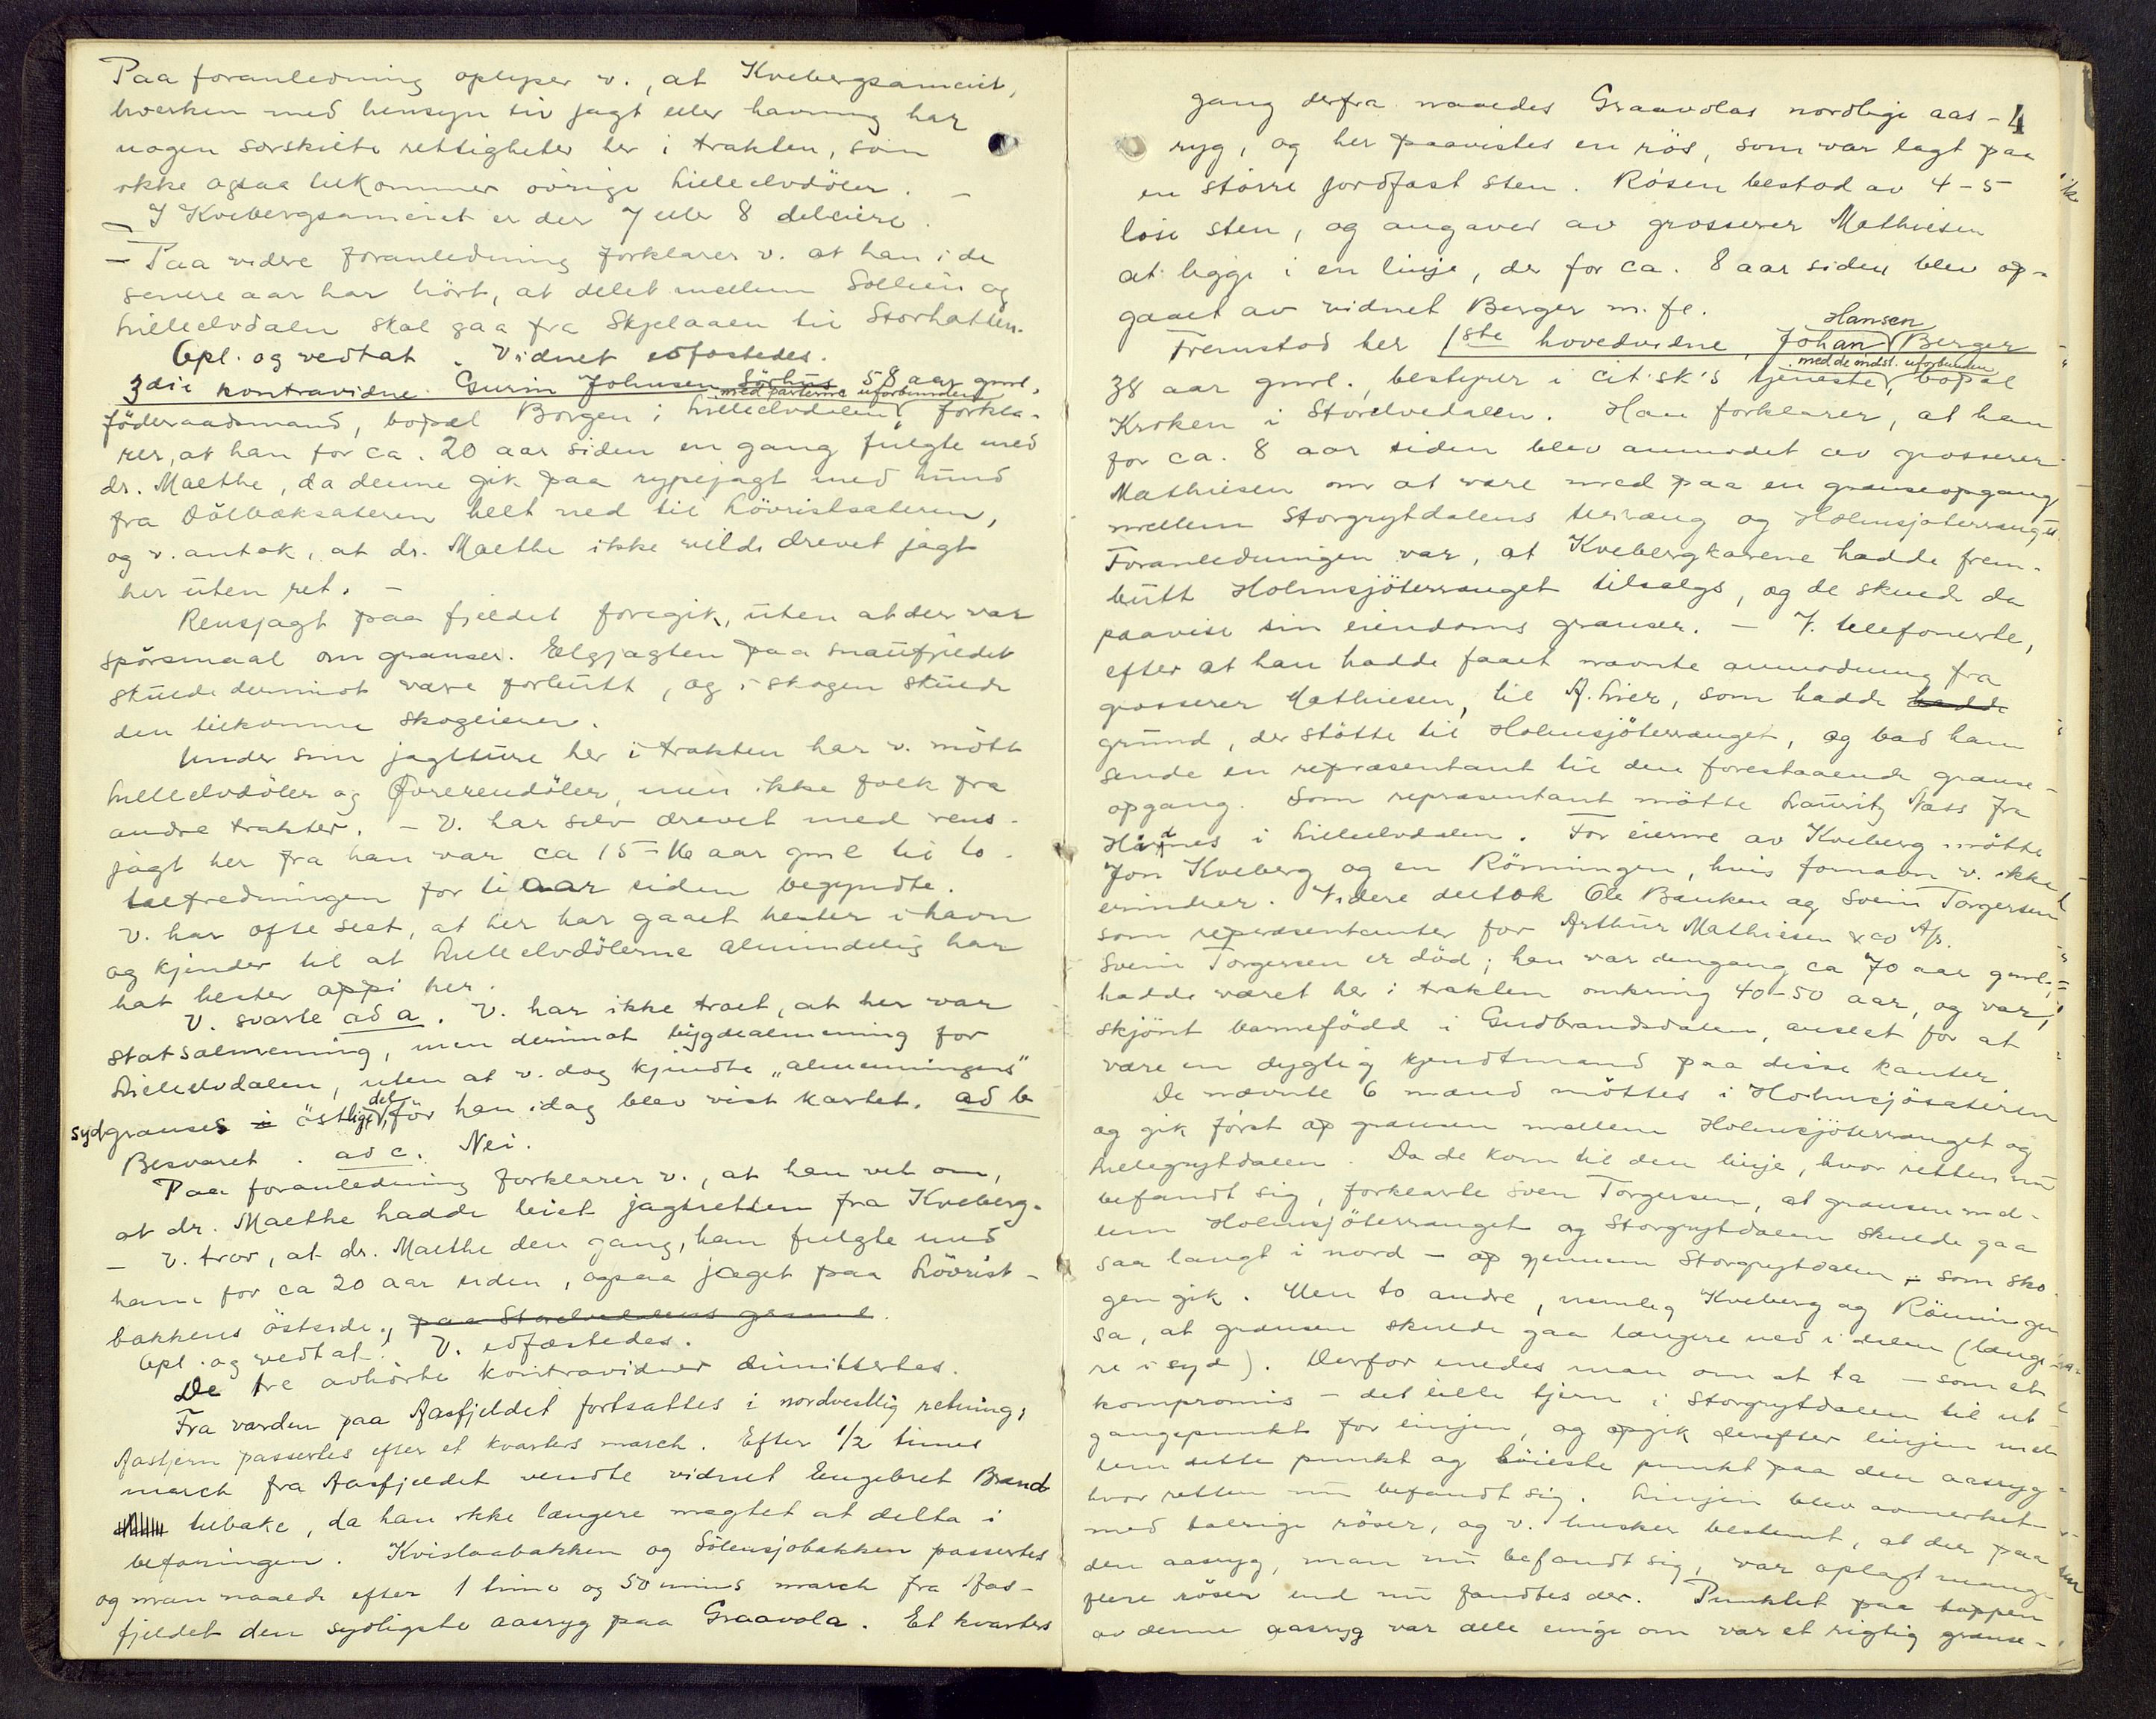 Paa foranledning oplyser v., at Kvebergsameiet,
hverken med hensyn til jagt eller havning har
nogen særskilte rettigheter her i trakten, som
ikke ogsaa tilkommer øvrige Lilleelvdöler. —
— I Kvebergsameiet er der 7 eller 8 deleiere.
— Paa videre foranledning forklarer v. at han i de
senere aar har hört, at delet mellem Sollien og
Lilleelvdalen skal gaa fra Skjelaaen til Storhatten.
Opl. og vedtat. Vidnet edfæstedes.
3die kontravidne Gurin Johnsen Sörhus 58 aar gml.,
med parterne uforbunden
föderaadsmand, bopæl Borgen i Lilleelvdalen, forkla-
rer, at han for ca. 20 aar siden en gang fulgte med
dr. Maethe, da denne gik paa rypejagt med hund
fra Dölbæksæteren helt ned til Lövristsæteren,
og v. antok, at dr. Maethe ikke vilde drevet jagt
her uten ret. —
Rensjagt paa fjeldet foregik, uten at der var
spörsmaal om grænser. Elgjagten paa snaufjeldet
skulde derimot være forbutt, og i skogen skulde
den tilkomme skogeieren.
Under sine jagtture her i trakten har v. mött
Lilleelvdöler og Övrerendöler, men ikke folk fra
andre trakter. — V. har selv drevet med rens-
jagt her fra han var ca 15-16 aar gml til to-
talfredningen for ti aar siden begyndte.
V. har ofte seet, at her har gaaet hester i havn
og kjender til at Lilleelvdölerne almindelig har
hat hester oppi her.
V. svarte ad a. V. har ikke troet, at her var
statsalmenning, men derimot bygdealmenning for
Lilleelvdalen, uten at v. dog kjendte „almenningens"
del
sydgrænses i östlige, för han idag blev vist kartet. ad b
Besvaret. ad c. Nei.
Paa foranledning forklarer v., at han vet om,
at dr. Maethe hadde leiet jagtretten fra Kveberg.
— V. tror, at dr. Maethe den gang, han fulgte med
ham for ca 20 aar siden, ogsaa jaget paa Lövrist-
bakkens östside, paa Storelvedalens grund.
Opl. og vedtat. V. edfæstedes.
De tre avhörte kontravidner dimittertes.
Fra varden paa Aasfjeldet fortsattes i nordvestlig retning,
Aastjern passertes efter et kvarters march. Efter 1/2 times
march fra Aasfjeldet vendte vidnet Engebret Brand
tilbake, da han ikke længere magtet at delta i
befaringen. Kvislaabakken og Sölensjobakken passertes
og man naaede efter 1 time og 50 mins march fra Aas-
fjeldet den sydligste aasryg paa Graavola. Et kvarters
4
gang derfra naaedes Graavolas nordlige aas-
ryg, og her paavistes en rös, som var lagt paa
en större jordfast sten. Rösen bestod av 4-5
löse sten, og angaves av grosserer Mathiesen
at ligge i en linje, der for ca. 8 aar siden blev op-
gaaet av vidnet Berger m. fl.
Hansen
Fremstod her 1ste hovedvidne, Johan Berger
med de indst. uforbunden
38 aar gml., bestyrer i cit.sk's tjeneste, bopæl
Kroken i Storelvedalen. Han forklarer, at han
for ca. 8 aar siden blev anmodet av grosserer
Mathiesen om at være med paa en grænseopgang
mellem Storgrytdalens terræng og Holmsjøterrænget.
Foranledningen var, at Kvebergkarene hadde frem-
butt Holmsjöterrænget tilsalgs, og de skulde da
paavise sin eiendoms grænser. — V. telefonerte,
efter at han hadde faaet nævnte anmodning fra
grosserer Mathiesen, til A. Lier, som hadde hadde
grund, der stötte til Holmsjöterrænget, og bad ham
sende en repræsentant til den forestaaende grænse-
opgang. Som repræsentant mötte Lauritz Næss fra
Hidnes i Lilleelvdalen. For eierne av Kveberg mötte
Jon Kveberg og en Rönningen, hvis fornavn v. ikke
erindrer. Videre deltok Ole Banken og Svein Torgersen
som repræsentanter for Arthur Mathiesen & co A/s.
Svein Torgersen er död; han var dengang ca 70 aar gml.,
hadde været her i trakten omkring 40-50 aar, og var,
skjönt barnefödd i Gudbrandsdalen, anseet for at
være en dygtig kjendtmand paa disse kanter.
De nævnte 6 mænd möttes i Holmsjösæteren
og gik först op grænsen mellem Holmsjöterrænget og
Lillegrytdalen. Da de kom til den linje, hvor retten nu
befandt sig, forklarte Sven Torgersen, at grænsen mel-
lem Holmsjöterrænget og Storgrytdalen skulde gaa
saa langt i nord — op gjennem Storgrytdalen — som sko-
gen gik. Men to andre, nemlig Kveberg og Rönningen
sa, at grænsen skulde gaa længere ned i dalen (længe-
re i syd). Derfor enedes man om at ta — som et
kompromis — det lille tjern i Storgrytdalen til ut-
gangspunkt for linjen, og opgik derefter linjen mel-
lem dette punkt og höieste punkt paa den aasryg
hvor retten nu befandt sig. Linjen blev avmerket
med talrige röser, og v. husker bestemt, at der paa
den aasryg, man nu befandt sig, var oplagt mange
flere röser end nu fandtes der. Punktet paa toppen
av denne aasryg var alle enige om var et rigtig grænse-